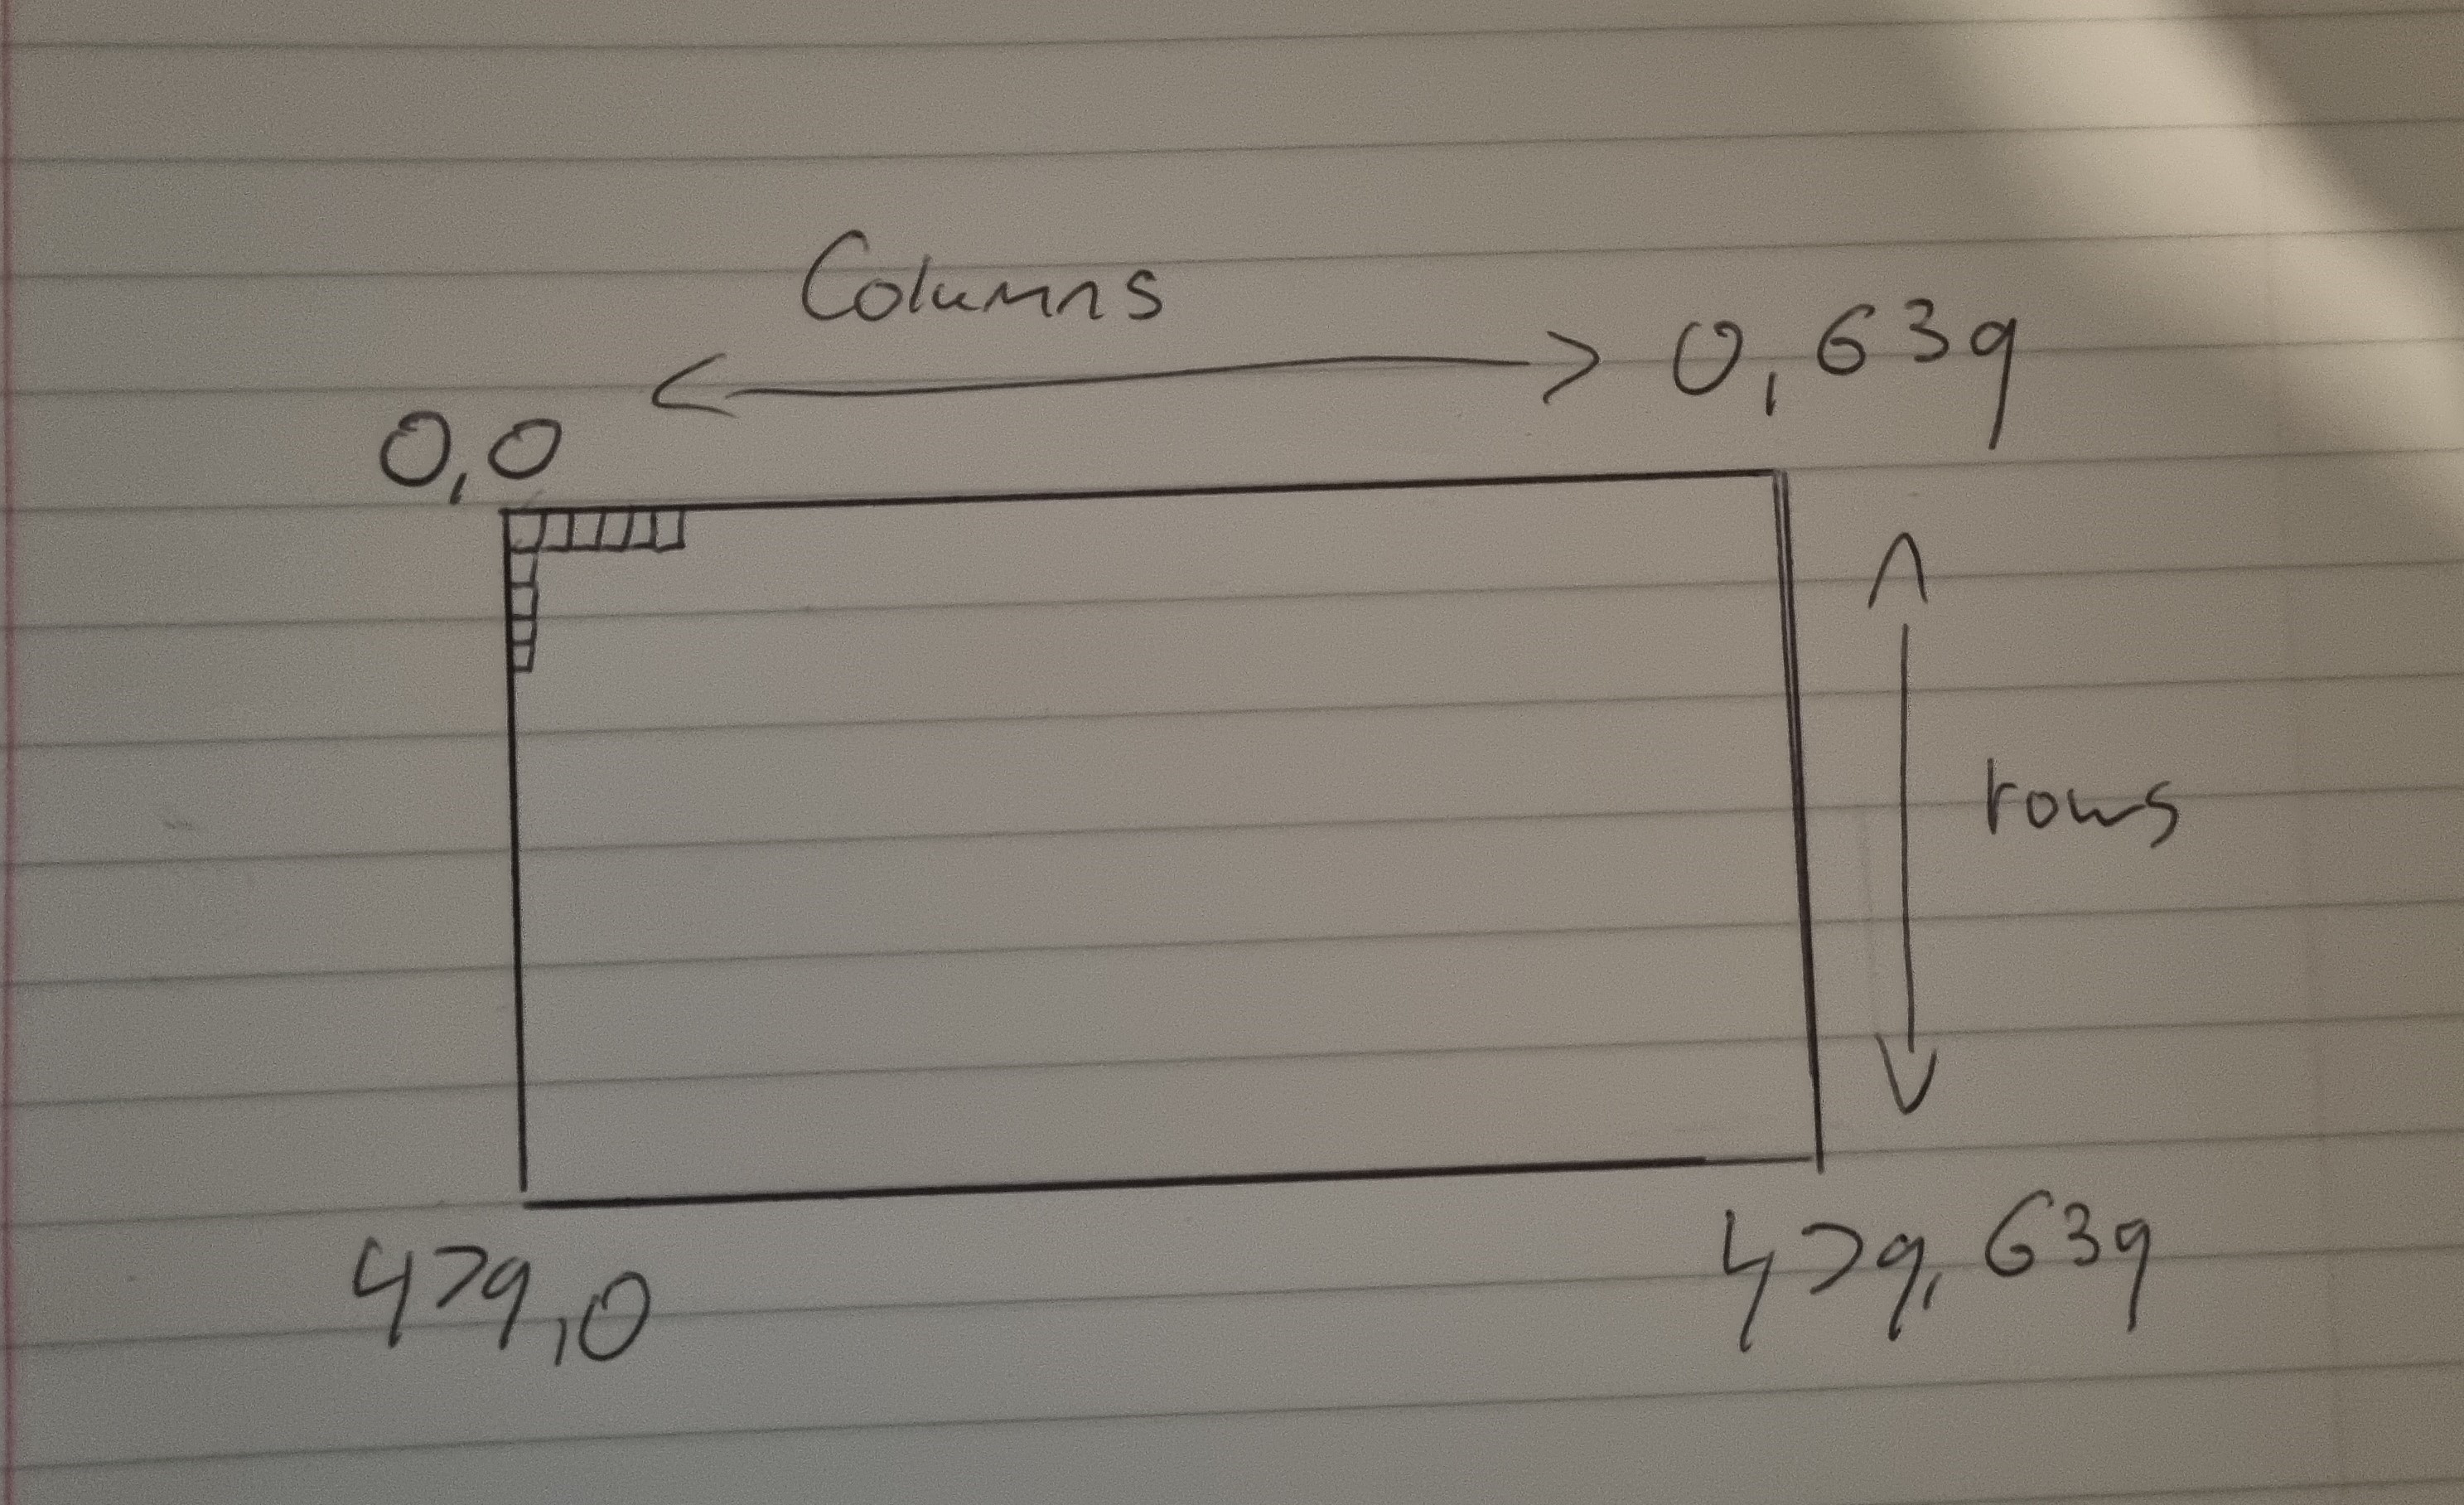 Columns
0,639
0,0
rows
479,0
479,639